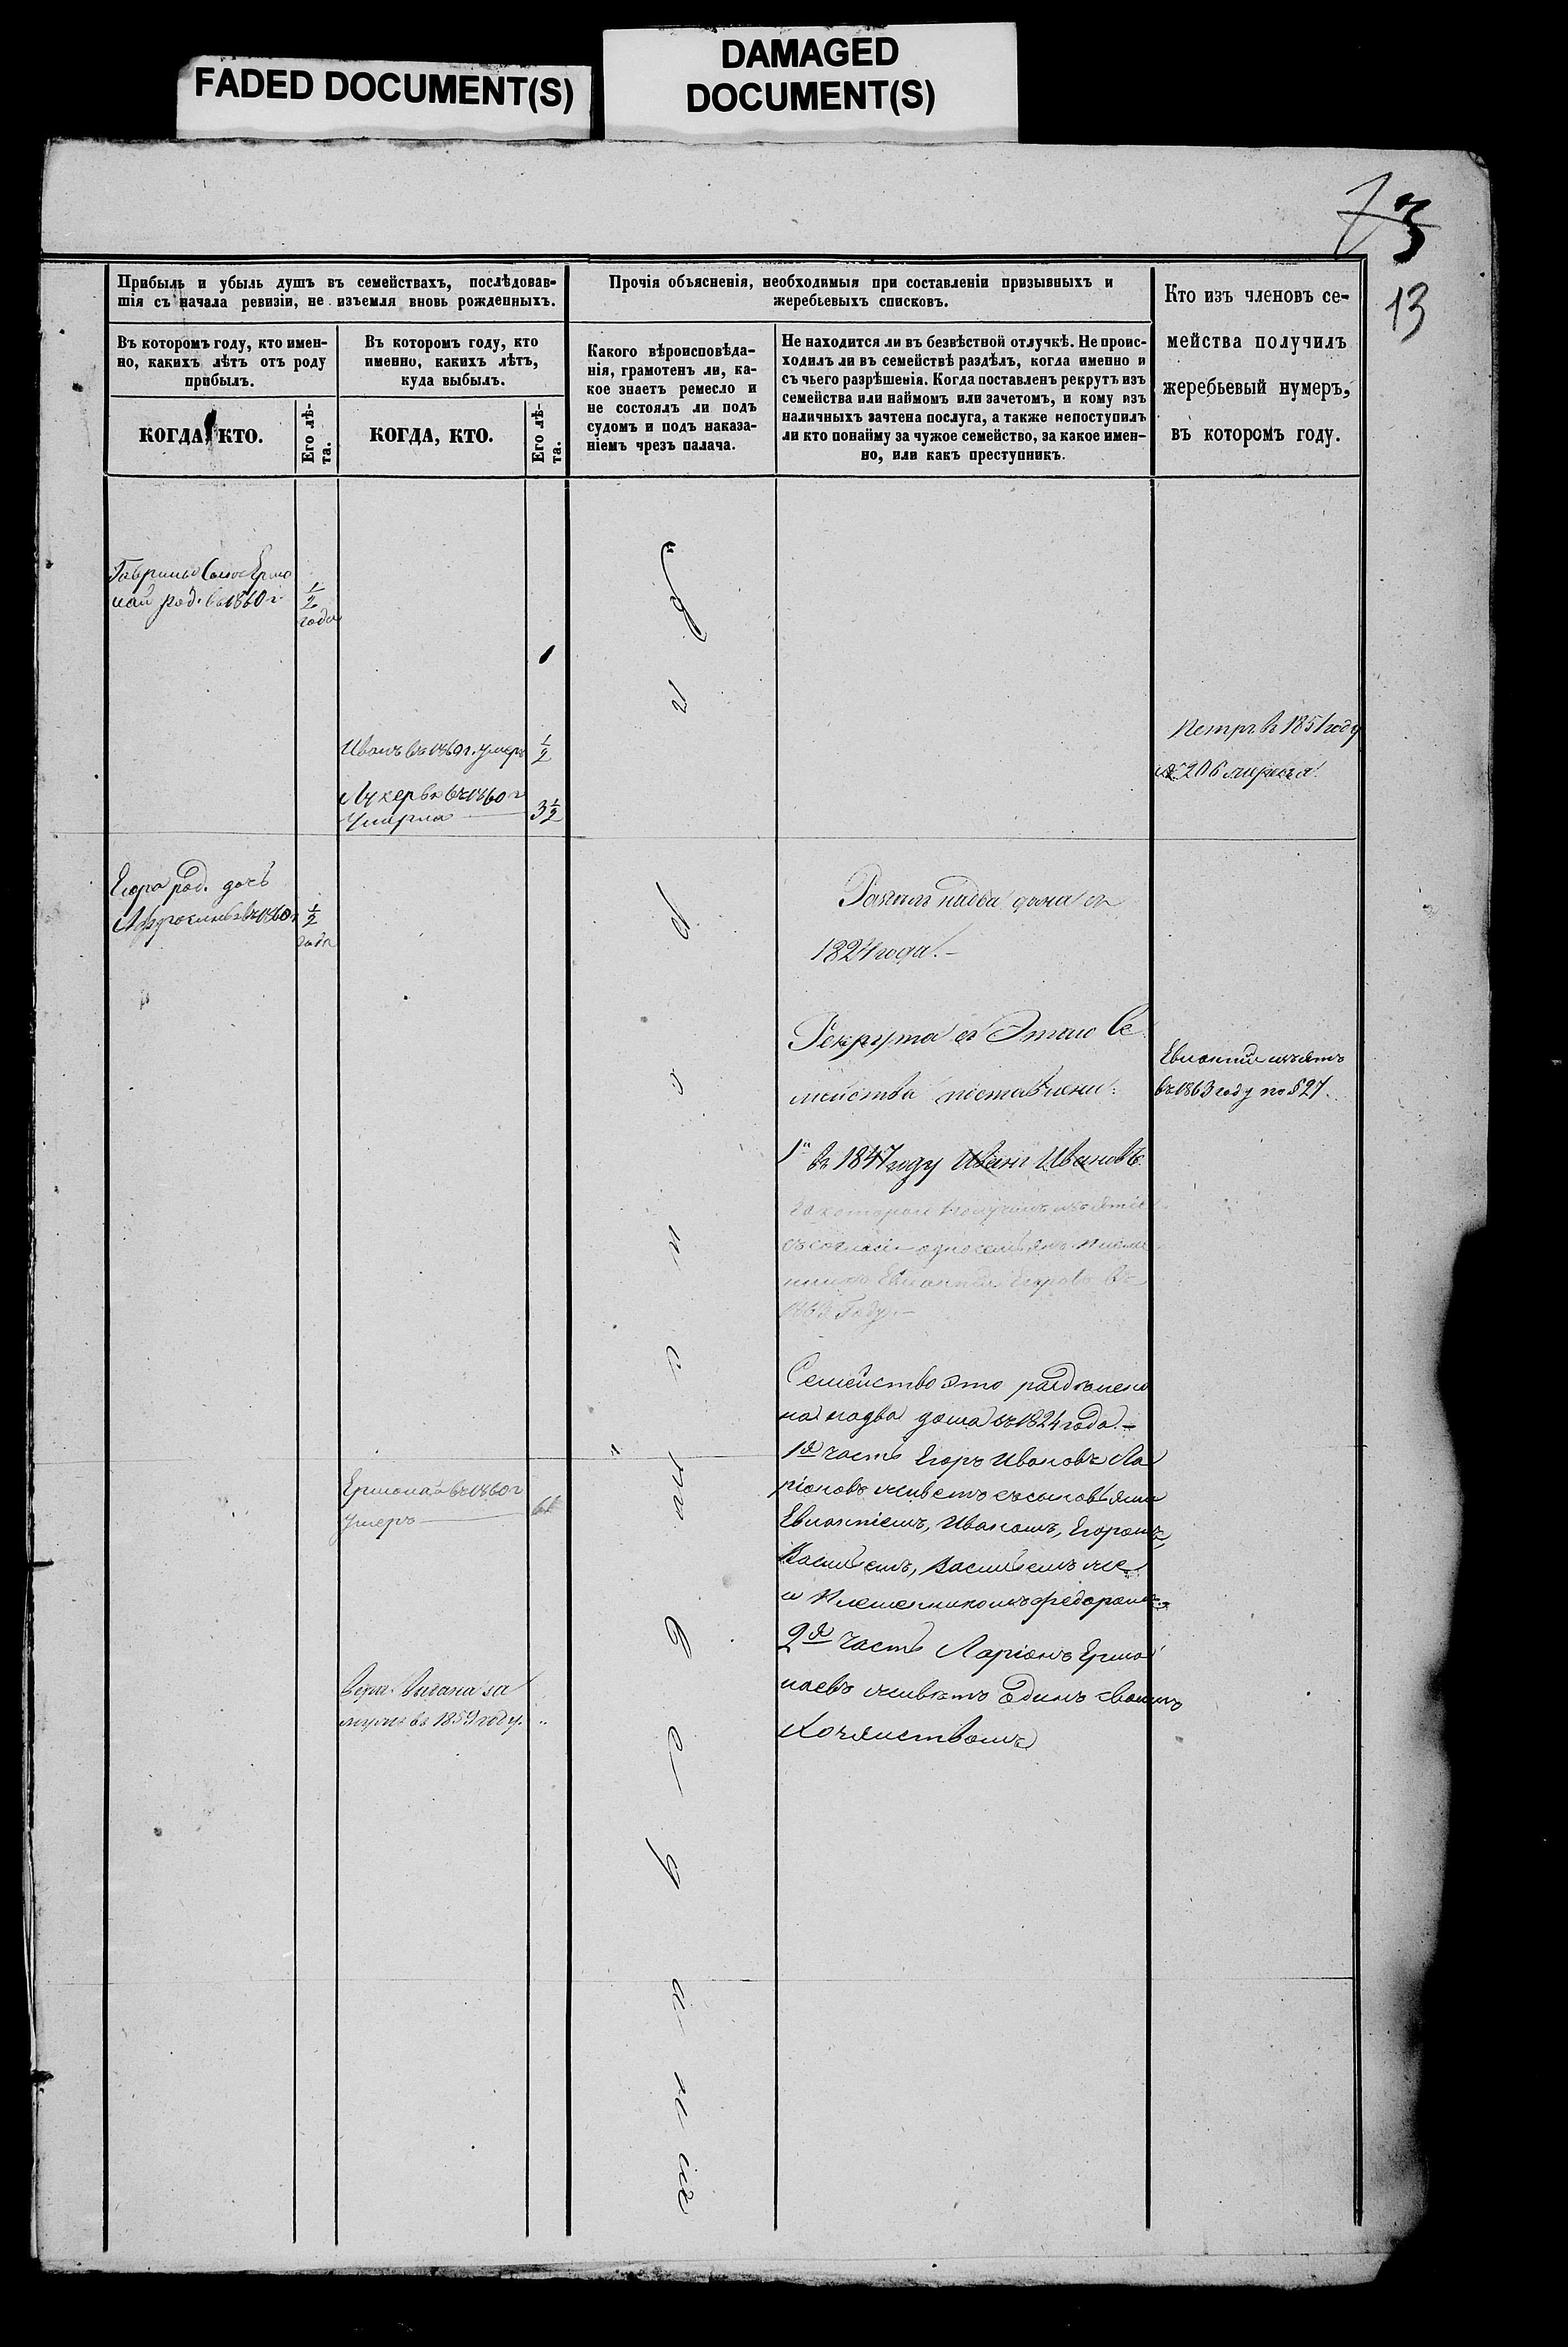 FADED DOCUMENT(S)
DAMAGED
DOCUMENT(S)
73
13
Прибыль и убыль душъ въ семействахъ, послѣдовав-
шія съ начала ревизіи, не изъемля вновь рожденныхъ.
Въ которомъ году, кто имен-
но, какихъ лѣтъ отъ роду
прибылъ.
КОГДА, КТО.
Его лѣ-
та.
Въ которомъ году, кто
именно, какихъ лѣтъ,
куда выбылъ.
КОГДА, КТО.
Его лѣ-
та.
Прочія объясненія, необходимыя при составленіи призывныхъ и
жеребьевыхъ списковъ.
Какого вѣроисповѣда-
нія, грамотенъ ли, ка-
кое знаетъ ремесло и
не состоялъ ли подъ
судомъ и подъ наказа-
ніемъ чрезъ палача.
Не находится ли въ безвѣстной отлучкѣ. Не проис-
ходилъ ли въ семействѣ раздѣлъ, когда именно и
съ чьего разрѣшенія. Когда поставленъ рекрутъ изъ
семейства или наймомъ или зачетомъ, и кому изъ
наличныхъ зачтена послуга, а также непоступилъ
ли кто понайму за чужое семейство, за какое имен-
но, или какъ преступникъ.
Кто изъ членовъ се-
мейства получилъ
жеребьевый нумеръ,
въ которомъ году.
Ермо
лай род. въ 1860 г
1/2
года
Иванъ въ 1860 г. умеръ 1/2
Лукерья въ 1860 г
умерла 3 1/2
Петръ въ 1851 году
№ 206
Егора род. дочь
въ 1860 г 1/2
года
надва дома съ
1824 года. –
Рекрута съ Этаго Се
мейства поставлены:
1й въ 1847 году Иванъ Ивановъ
Евлампій изъятъ
въ 1863 году по § 27.
за котораго получилъ изъятіе
съ согласія племян
никъ Евлампій Егоровъ въ
1863 Году. –
Семейство это раздѣлено
на надва дома съ 1824 года. –
1я часть Егоръ Ивановъ Ла
ріоновъ живетъ съ сыновьями
Евлампіемъ, Иваномъ, Егоромъ,
Васильемъ, Васильемъ же
и Племянникомъ Федоромъ.
2я часть Ларіонъ Ермо
лаевъ живетъ одинъ своимъ
Хозяйствомъ
Ермолай въ 1860 г
умеръ 61
Выдана за
мужъ въ 1859 году. „